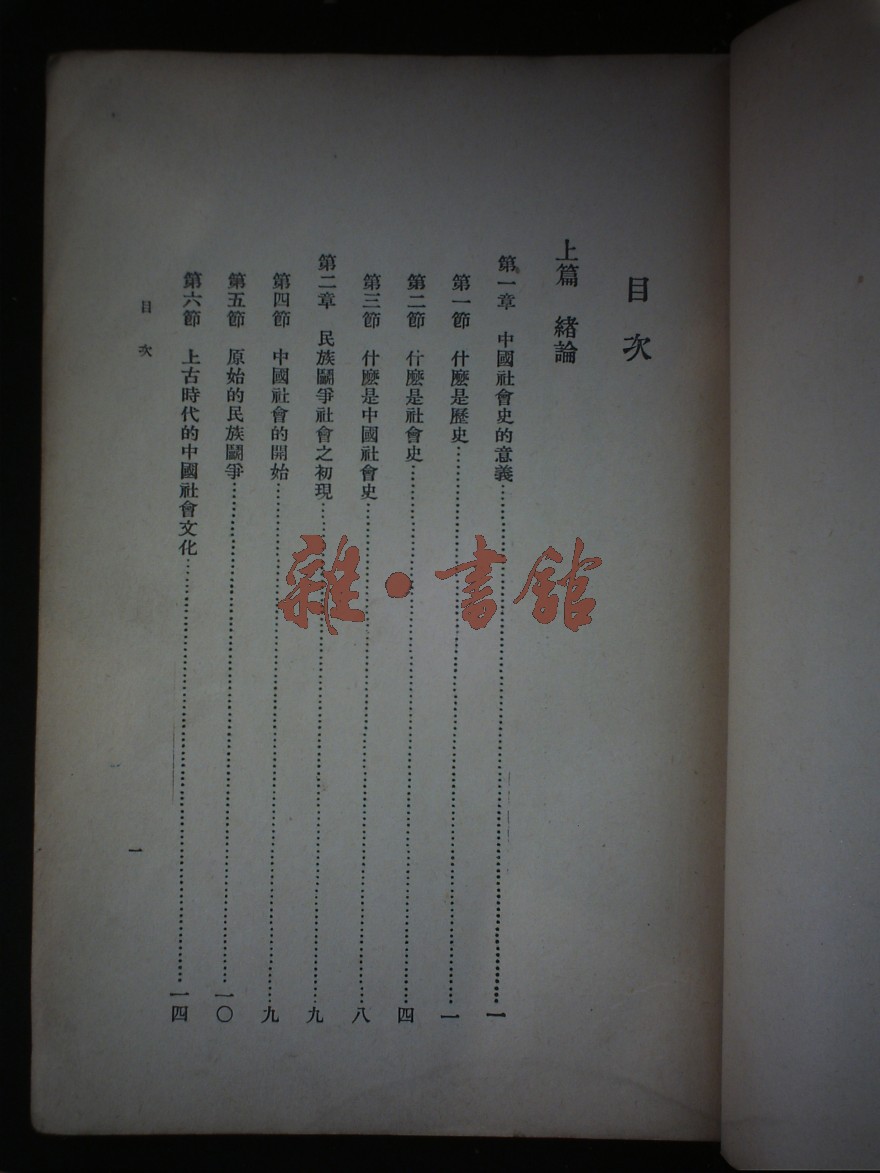 目次
上篇 緒論
第一章 中國社會史的意義……一
第一節 什麼是歷史……一
第二節 什麼是社會史……四
第三節 什麼是中國社會史……八
第二章 民族鬭爭社會之初現……九
第四節 中國社會的開始……九
第五節 原始的民族鬭爭……一〇
第六節 上古時代的中國社會文化……一四
目次
一
雜·書館